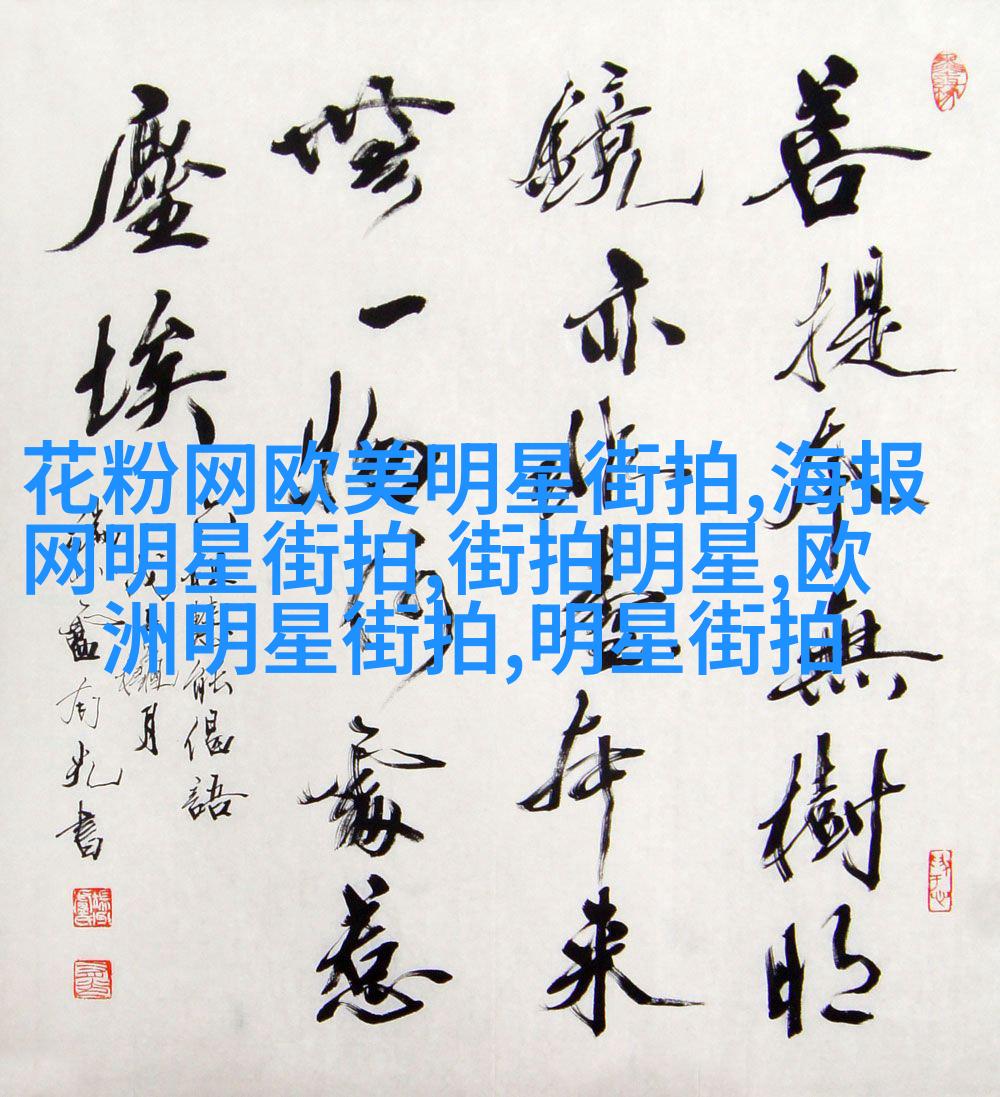 菩提本無樹明
鏡亦非臺本來
無一物何處惹
塵埃
六祖慧能偈語
月
書
花粉网欧美明星街拍,海报
网明星街拍,街拍明星,欧
洲明星街拍,明星街拍